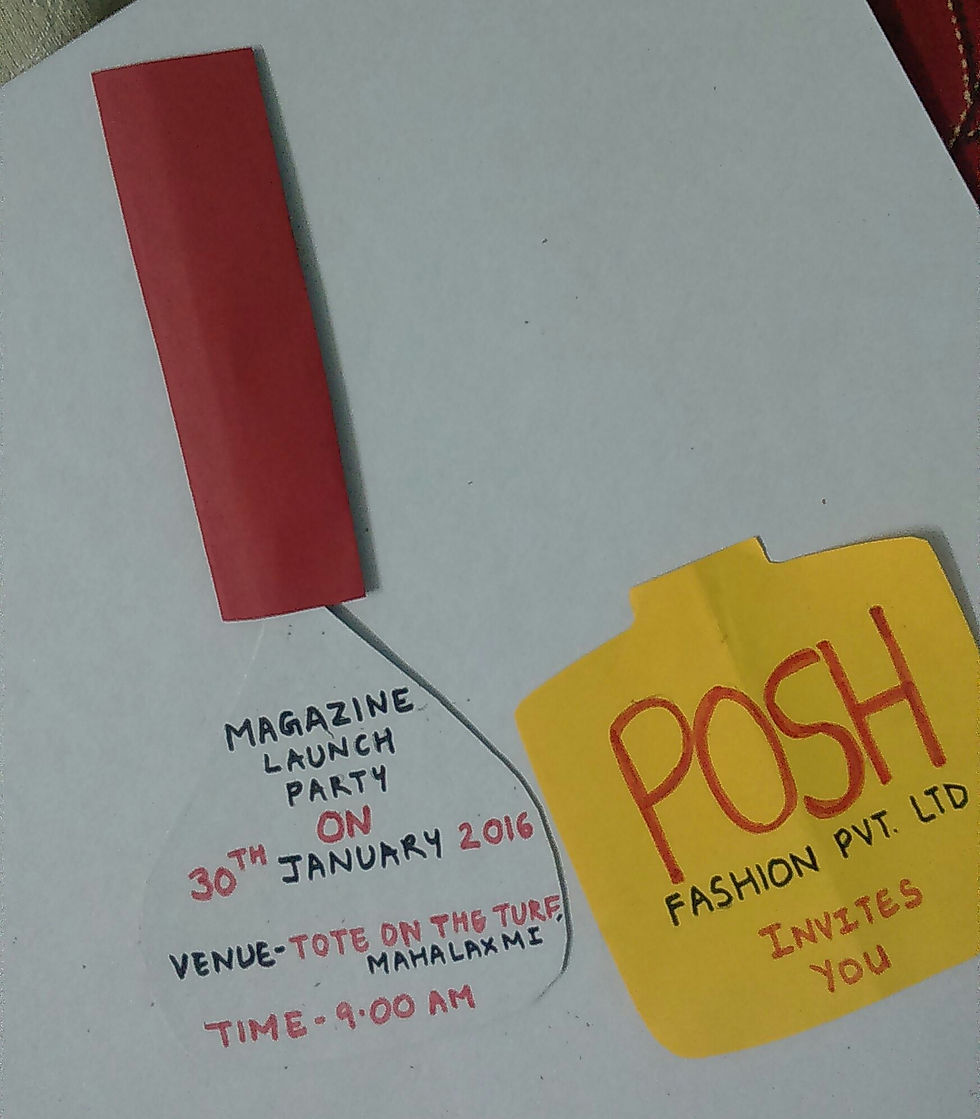 POSH
FASHION PVT. LTD
INVITES
YOU
MAGAZINE
LAUNCH
PARTY
ON
30TH JANUARY 2016
VENUE-TOTE ON THE TURF,
MAHALAXMI
TIME-9.00 AM